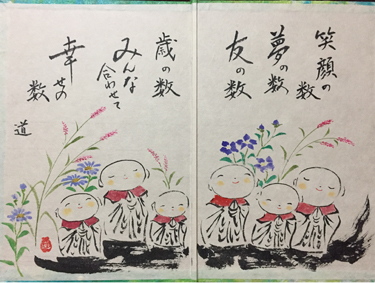 笑顔の数
夢の数
友の数
歳の数
みんな
合わせて
幸せの数
道